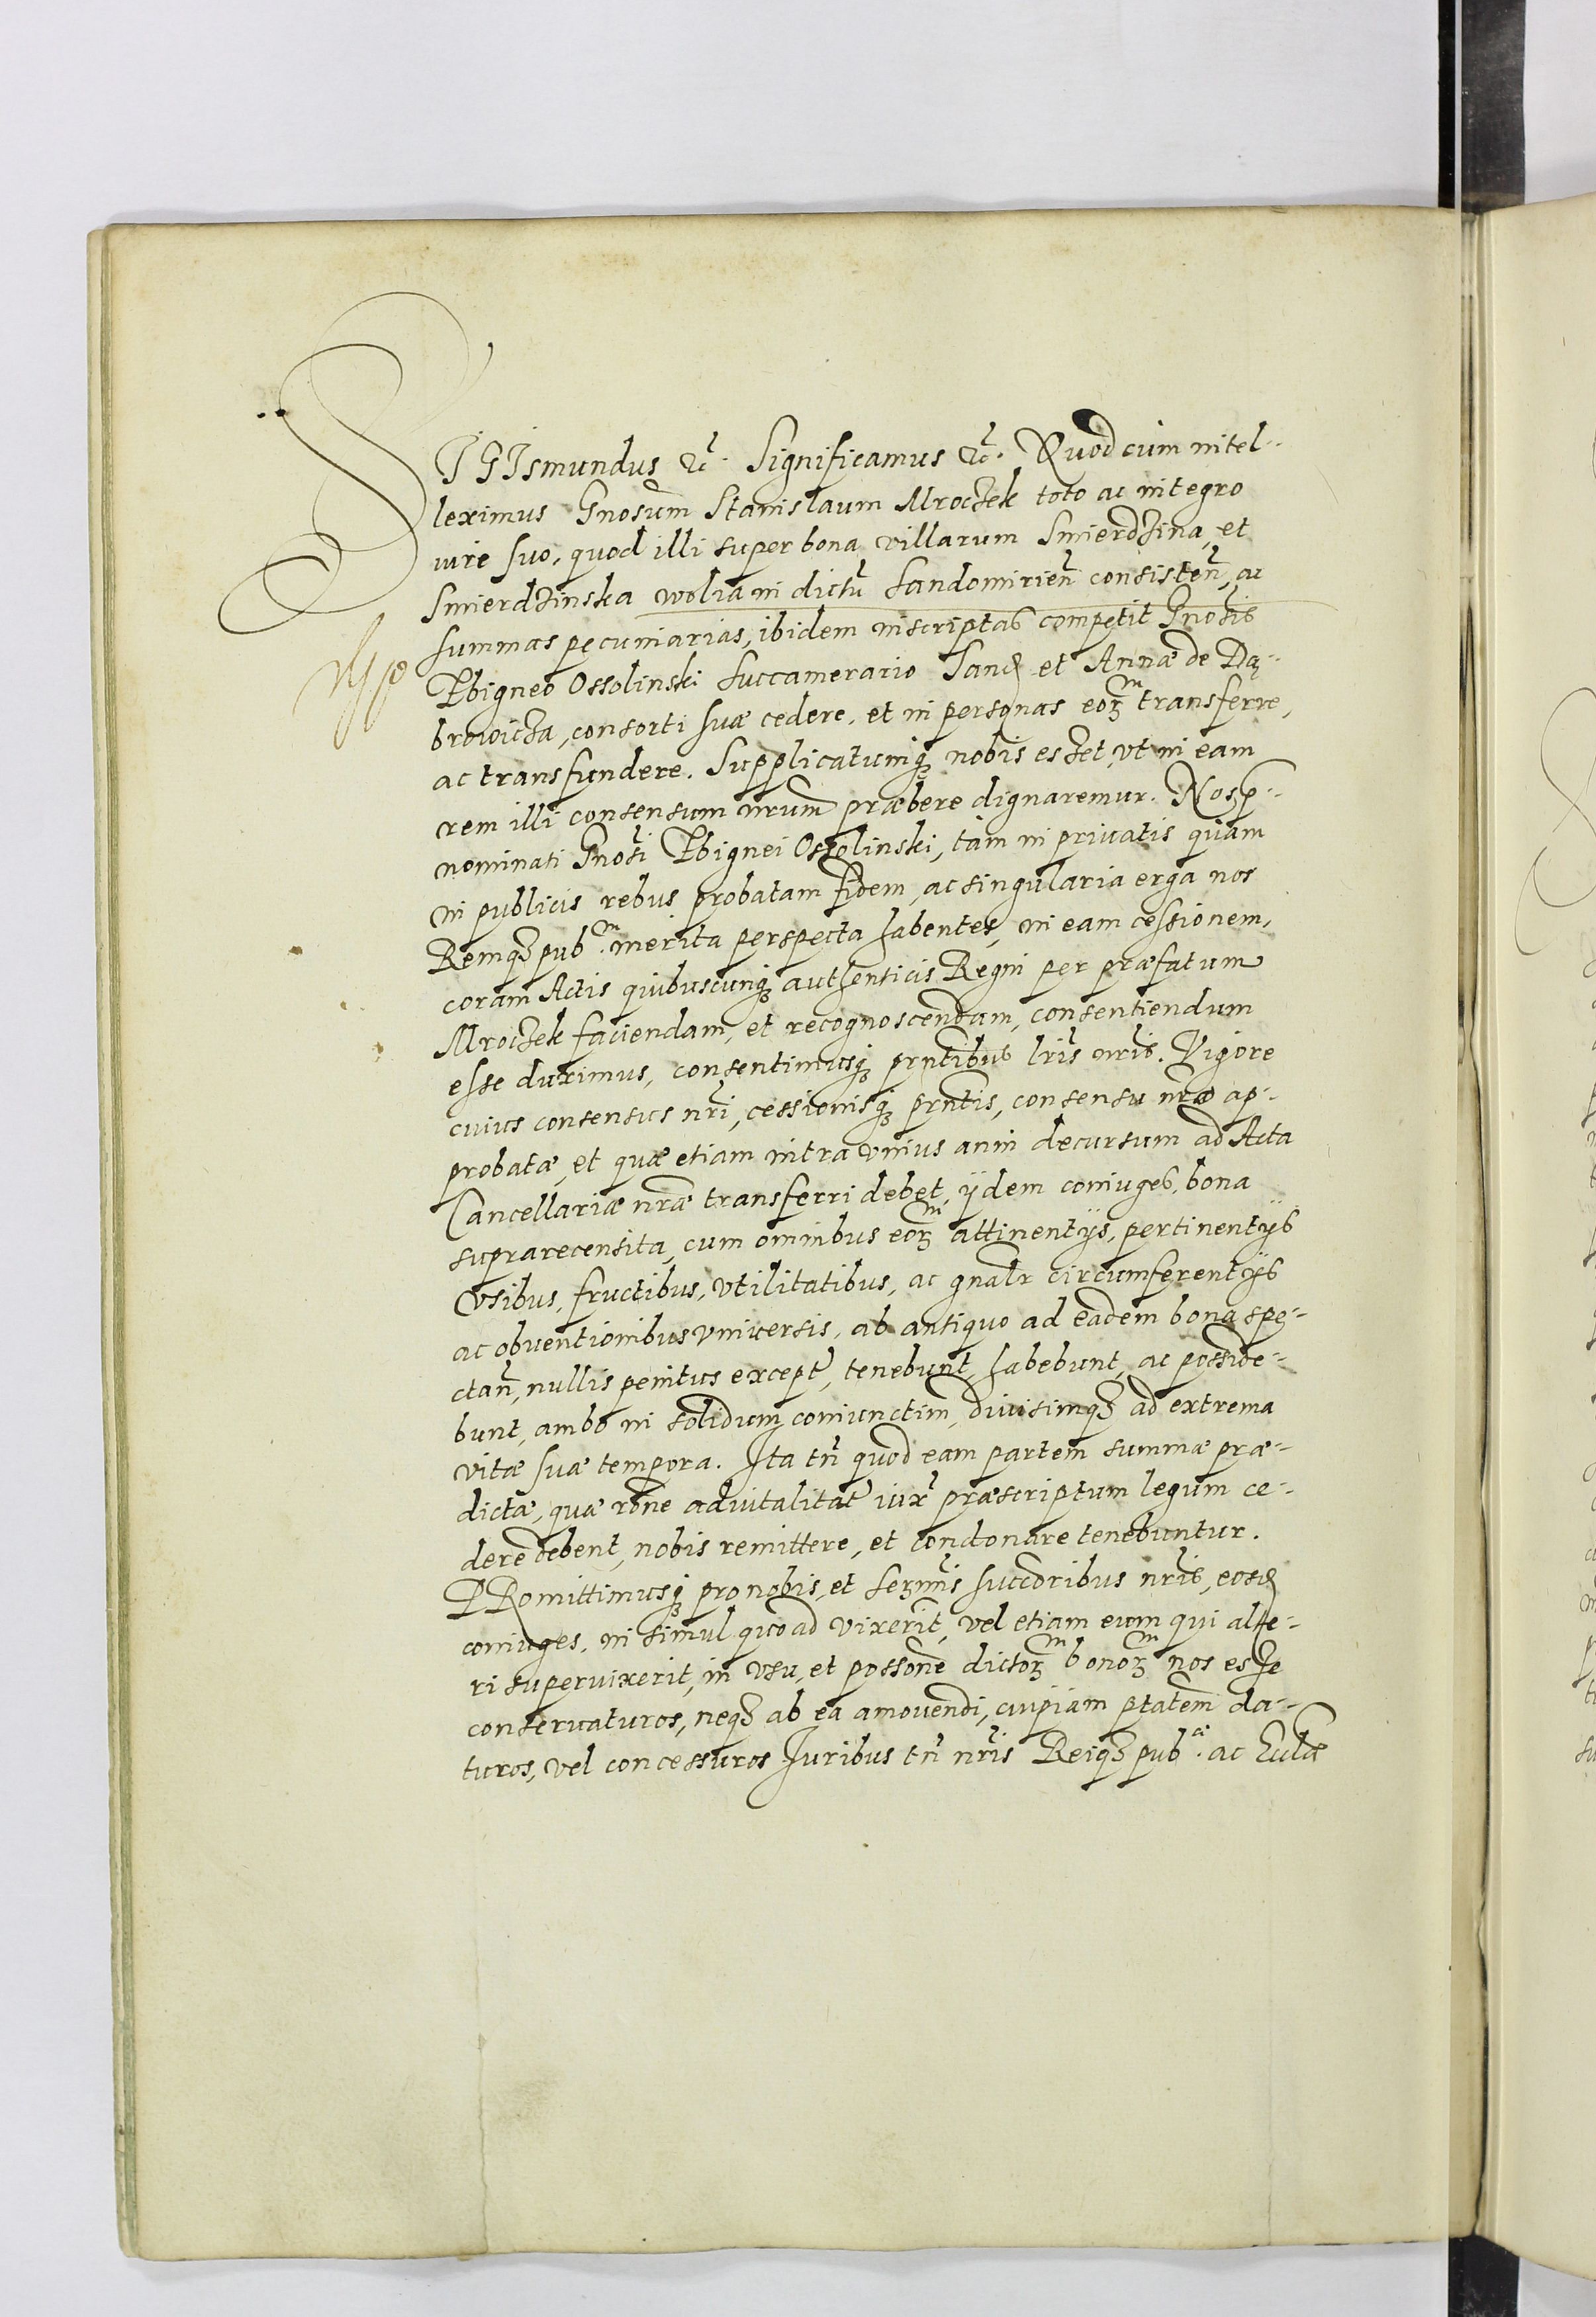 SIGIsmundus &c̃. Significamus &c̃. Quod cum intel-
leximus Gnosum Stanislaum Mroczek toto ac integro
iure suo, quod illi super bona villarum Smierdzina, et
Smierdzinska wolia in dictũ Sandomirien̄ consisten̄, ac
summas pecuniarias, ibidem inscriptas competit Gnosis
Zbigneo Ossolinski Succamerario Sand. et Annæ de Dą-
browicza, consorti suæ cedere, et in personas eorꝫᵐ transferre,
ac transfundere. Supplicatumqꝫ nobis esset, vt in eam
rem illi consensum nrum præbere dignaremur. Nos p-
nominati Gnosi Zbignei Ossolinski, tam in priuatis quam
in publicis rebus probatam fidem, ac singularia erga nos
Remqꝫ pub.ᵐ merita perspecta habentes, in eam cessionem,
coram Actis quibuscunqꝫ authenticis Regni per præfatum
Mroczek faciendam, et recognoscendam, consentiendum
esse duximus, consentimusqꝫ prntibus lris nris. Vigore
cuius consensus nri, cessionisqꝫ prntis, consensu nro ap-
probatæ, et quæ etiam intra vnius anni decursum ad Acta
Cancellariæ nræ transferri debet, ijdem coniuges, bona
suprarecensita, cum omnibus eorꝫᵐ attinentijs, pertinentijs
vsibus, fructibus, vtilitatibus, ac gnalr circumferentijs
ac obuentionibus vniuersis, ab antiquo ad eadem bona spe-
ctan̄, nullis penitus except̃, tenebunt, habebunt, ac posside-
bunt, ambo in solidum coniunctim, diuisimqꝫ ad extrema
vitæ suæ tempora. Ita tñ quod eam partem summæ præ-
dictæ, quæ rone aduitalitat̃ iux̃ præscriptum legum ce-
dere debent, nobis remittere, et condonare tenebuntur.
PRomittimusqꝫ pro nobis, et Sermis succoribus nris, eosd
coniuges, in simul quoad vixerint, vel etiam eum qui alte-
ri superuixerit, in vsu, et possone dictorꝫᵐ bonorꝫᵐ nos esse
conseruaturos, neqꝫ ab ea amouendi, cuipiam ptatem da-
turos, vel concessuros Iuribus tñ nris Reiqꝫ pub.ᶜᵃ ac Ecclæ